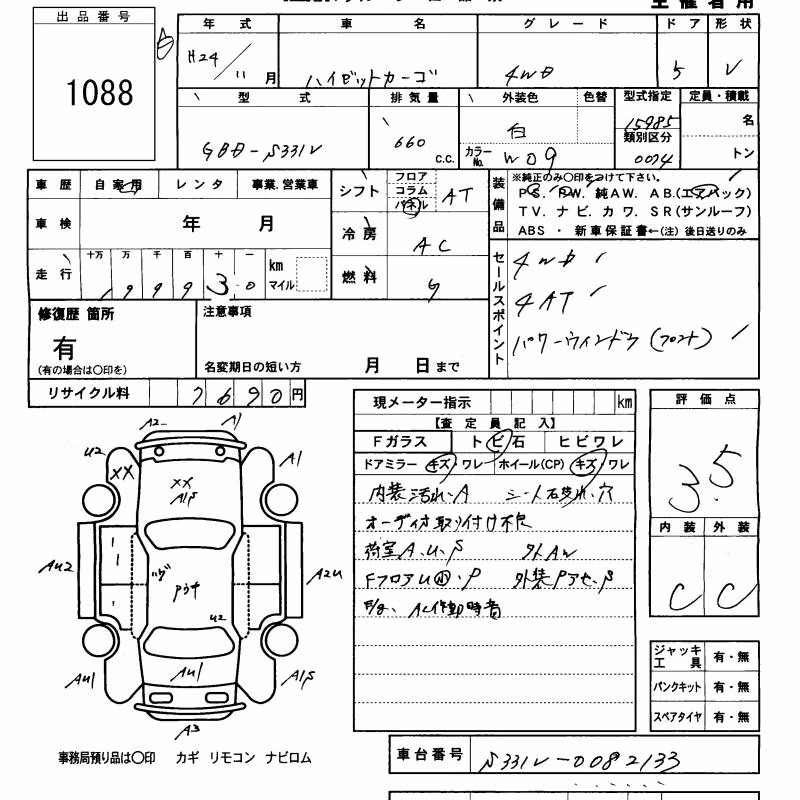 出品番号
1088
年式 車名 グレード ドア 形状
H24/11月 ハイゼットカーゴ 4WD 5 V
型式 排気量 外装色 色替 型式指定 定員・積載
GBD-S331V 660 c.c. 白 15985 名
カラーNo. W09 類別区分 0074 トン
車歴 自家用 レンタ 事業.営業車
シフト フロア コラム パネル AT
装備品
※純正のみ〇印をつけて下さい。
PS. PW. 純AW. AB.(エアバック)
TV. ナビ. カワ. SR(サンルーフ)
ABS ・ 新車保証書←(注) 後日送りのみ
車検 年 月
冷房 AC
走行 十万 万 千 百 十 一 km マイル
199930
燃料 G
セールスポイント
4WD
4AT
パワーウィンドウ(フロント)
修復歴 箇所
有
(有の場合は〇印を)
注意事項
名変期日の短い方 月 日まで
リサイクル料 7690円
現メーター指示 km
【査定員記入】
Fガラス トビ石 ヒビワレ
ドアミラー キズ・ワレ ホイール(CP) キズ・ワレ
内装汚れ、A シート 穴
オーディオ取り付け不良
荷室A.U.S 外AW
FフロアU小.P
AC作動時音
評価点
3.5
内装 外装
C C
A2 A1
U2 XX A1
XX
A1S
AU2 A2U
U2
AU1
AU1 A1S
A3
ジャッキ工具 有・無
パンクキット 有・無
スペアタイヤ 有・無
事務局預り品は〇印 カギ リモコン ナビロム
車台番号 S331V-0082133